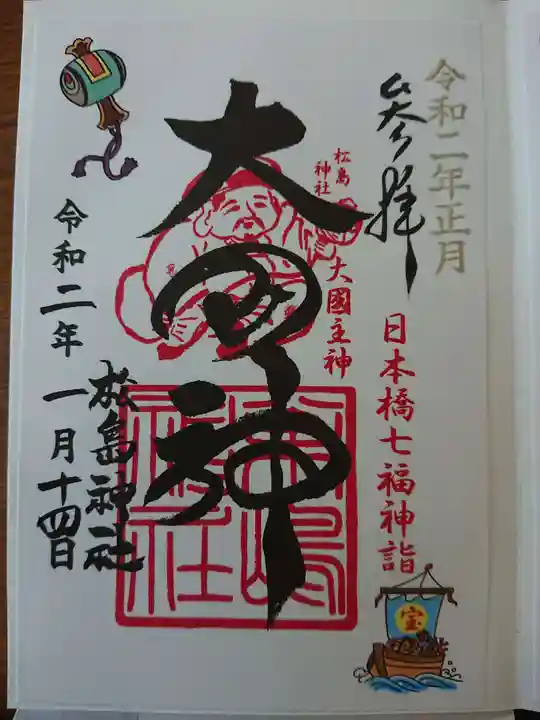 令和二年正月
参拝
日本橋七福神詣
松島
神社
大國主神
大国神
松嶋
神社
松島神社
令和二年一月十四日
宝